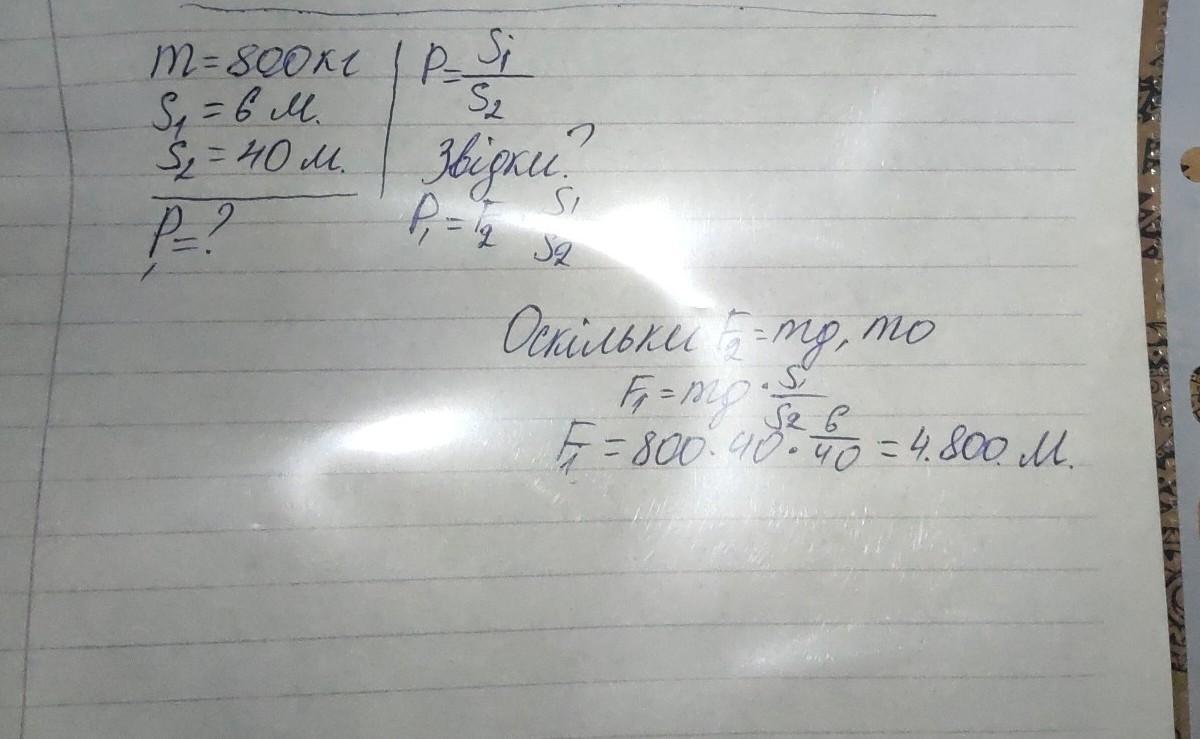 m=800кг
S1=6 м.
S2=40 м.
P1=?
P=S1/S2
Звідки?
P1=F2 S1/S2
Оскільки F2=mg, то
F1=mg·S1/S2
F1=800·40·6/40=4.800.м.